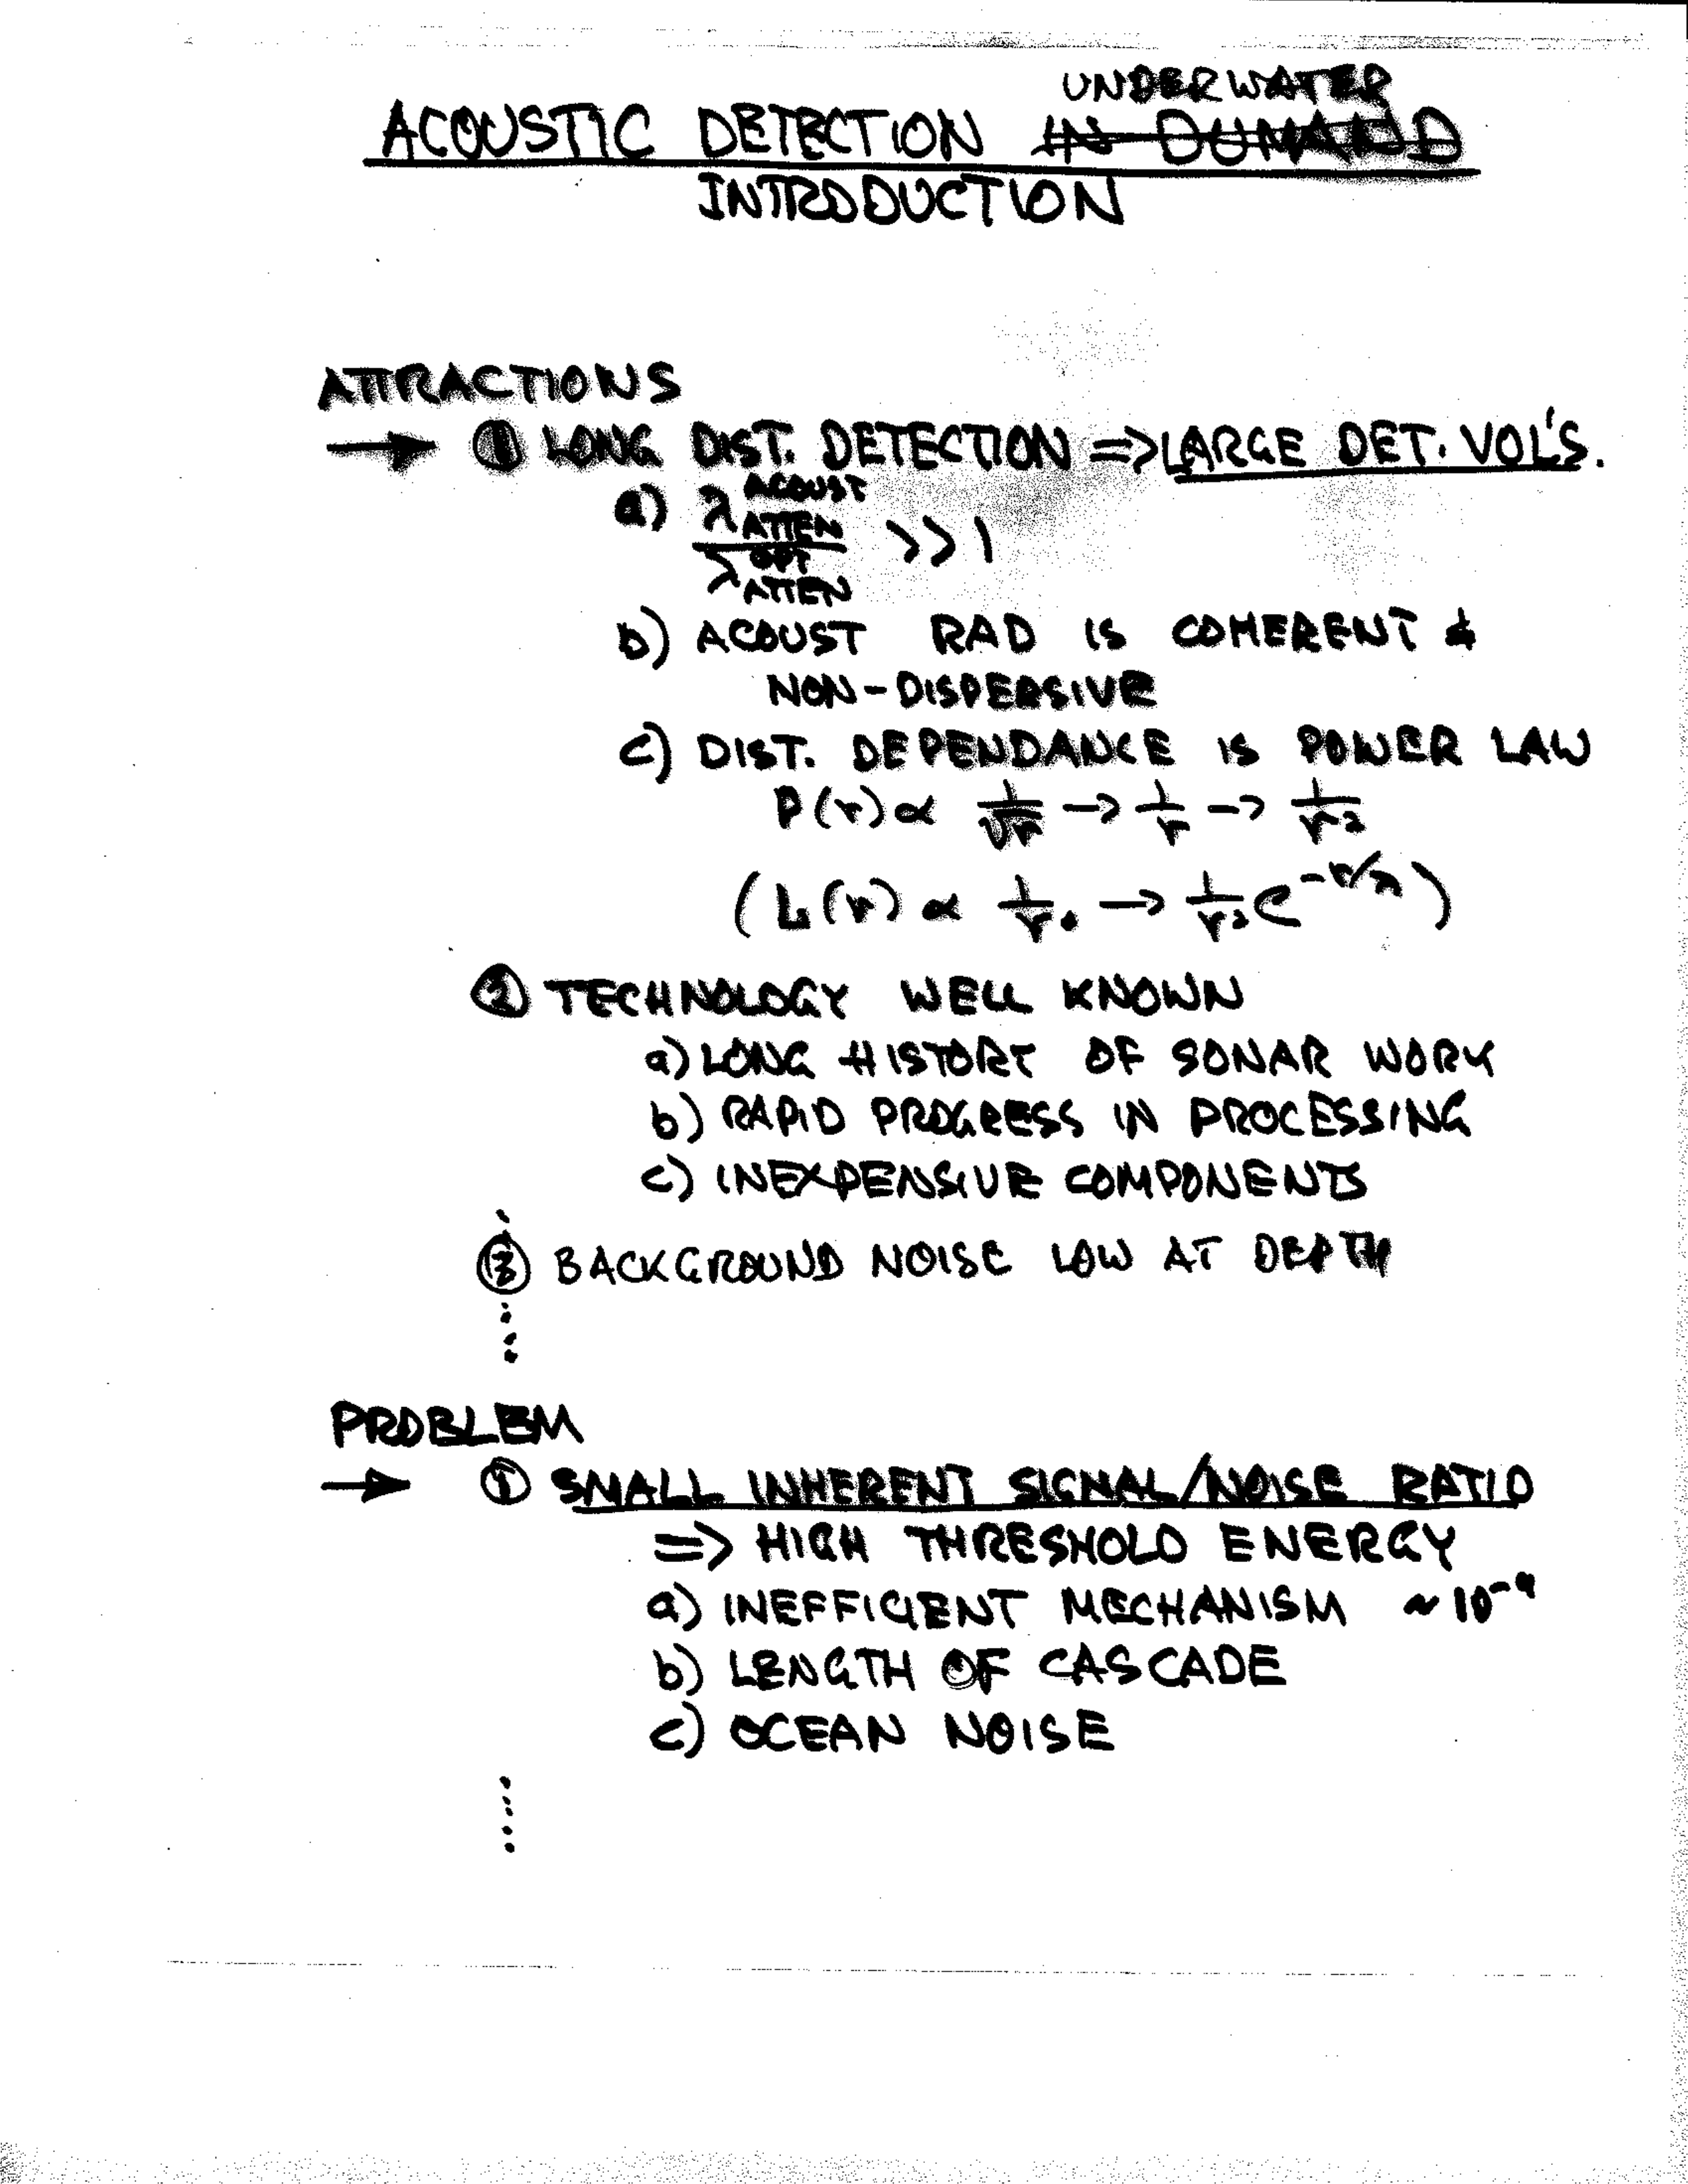 UNDERWATER
ACOUSTIC DETECTION IN DUMAND
INTRODUCTION
ATTRACTIONS
→ ① LONG DIST. DETECTION => LARGE DET. VOL'S.
a) λ ACOUST ATTEN / λ OPT ATTEN >> 1
b) ACOUST RAD IS COHERENT &
NON-DISPERSIVE
c) DIST. DEPENDANCE IS POWER LAW
P(r) ∝ 1/√r → 1/r → 1/r²
(L(r) ∝ 1/r. → 1/r² e^-r/λ)
② TECHNOLOGY WELL KNOWN
a) LONG HISTORY OF SONAR WORK
b) RAPID PROGRESS IN PROCESSING
c) INEXPENSIVE COMPONENTS
③ BACKGROUND NOISE LOW AT DEPTH
PROBLEM
→ ① SMALL INHERENT SIGNAL/NOISE RATIO
=> HIGH THRESHOLD ENERGY
a) INEFFICIENT MECHANISM ~ 10⁻⁹
b) LENGTH OF CASCADE
c) OCEAN NOISE